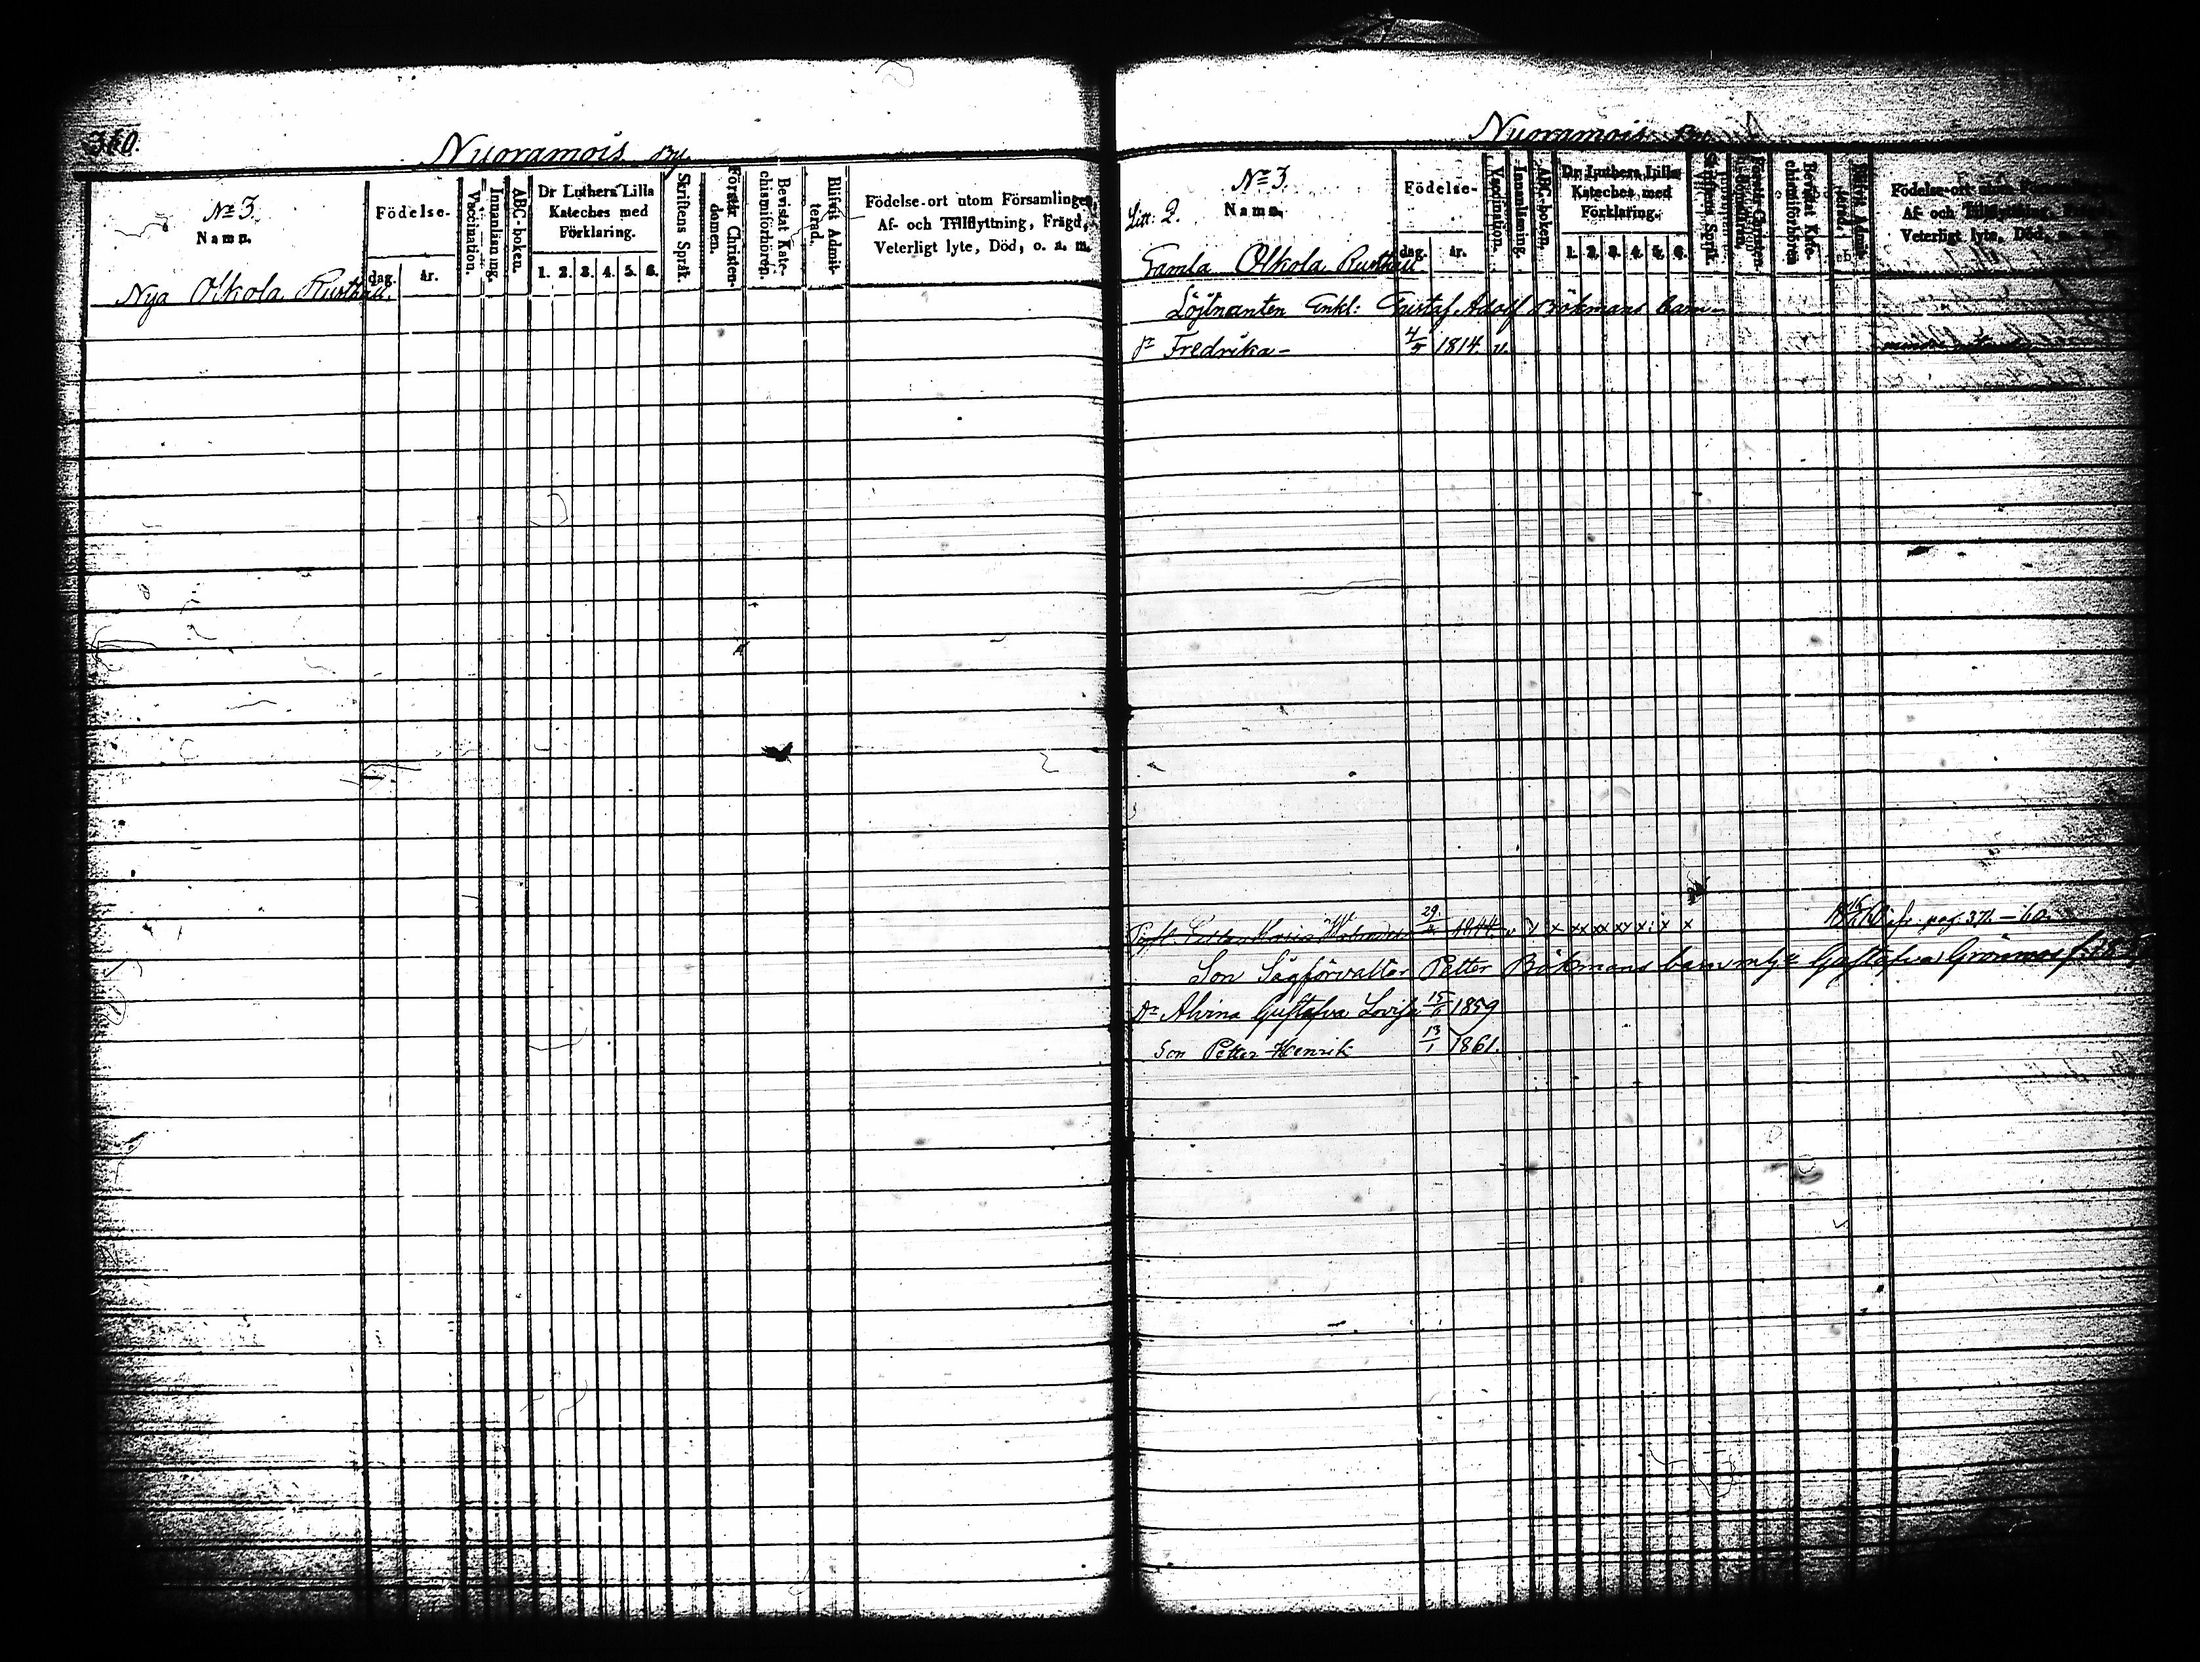 340.
Nuoramois By.
No 3.
Namn.
Födelse-
dag.
år.
Vaccination.
Innanläsning.
ABC-boken.
Dr Luthers Lilla
Kateches med
Förklaring.
1. 2. 3. 4. 5. 6.
Skriftens Språk.
Förstår Christen-
domen.
Bevistat Kate-
chismiförhören.
Blifvit Admit-
terad.
Födelse-ort utom Församlingen,
Af- och Tillflyttning, Frägd,
Veterligt lyte, Död, o. s. m.
Nya Olkola Rusthåll.
Nuoramois By
No 3.
Litt: 2.
Namn.
Födelse-
dag.
år.
Vaccination.
Innanläsning.
ABC-boken.
Dr Luthers Lilla
Kateches med
Förklaring.
1. 2. 3. 4. 5. 6.
Skriftens Språk.
Födelse-ort utom
Af- och Tillflyttning,
Veterligt lyte, Död,
Gamla Olkola Rusthåll
Löjtnanten Enkl: Gustaf Adolf Bökmans barn
Fredrika 4/5 1814. v.
29 1844 v x xx xx xx x x x pag. 371 - 60.
Son Sågförvalter Petter Bökmans barn Gustafva Grönmas
Dr Alvina Gustafva Lovisa 15/6 1859
Son Petter Henrik 13/1 1861.